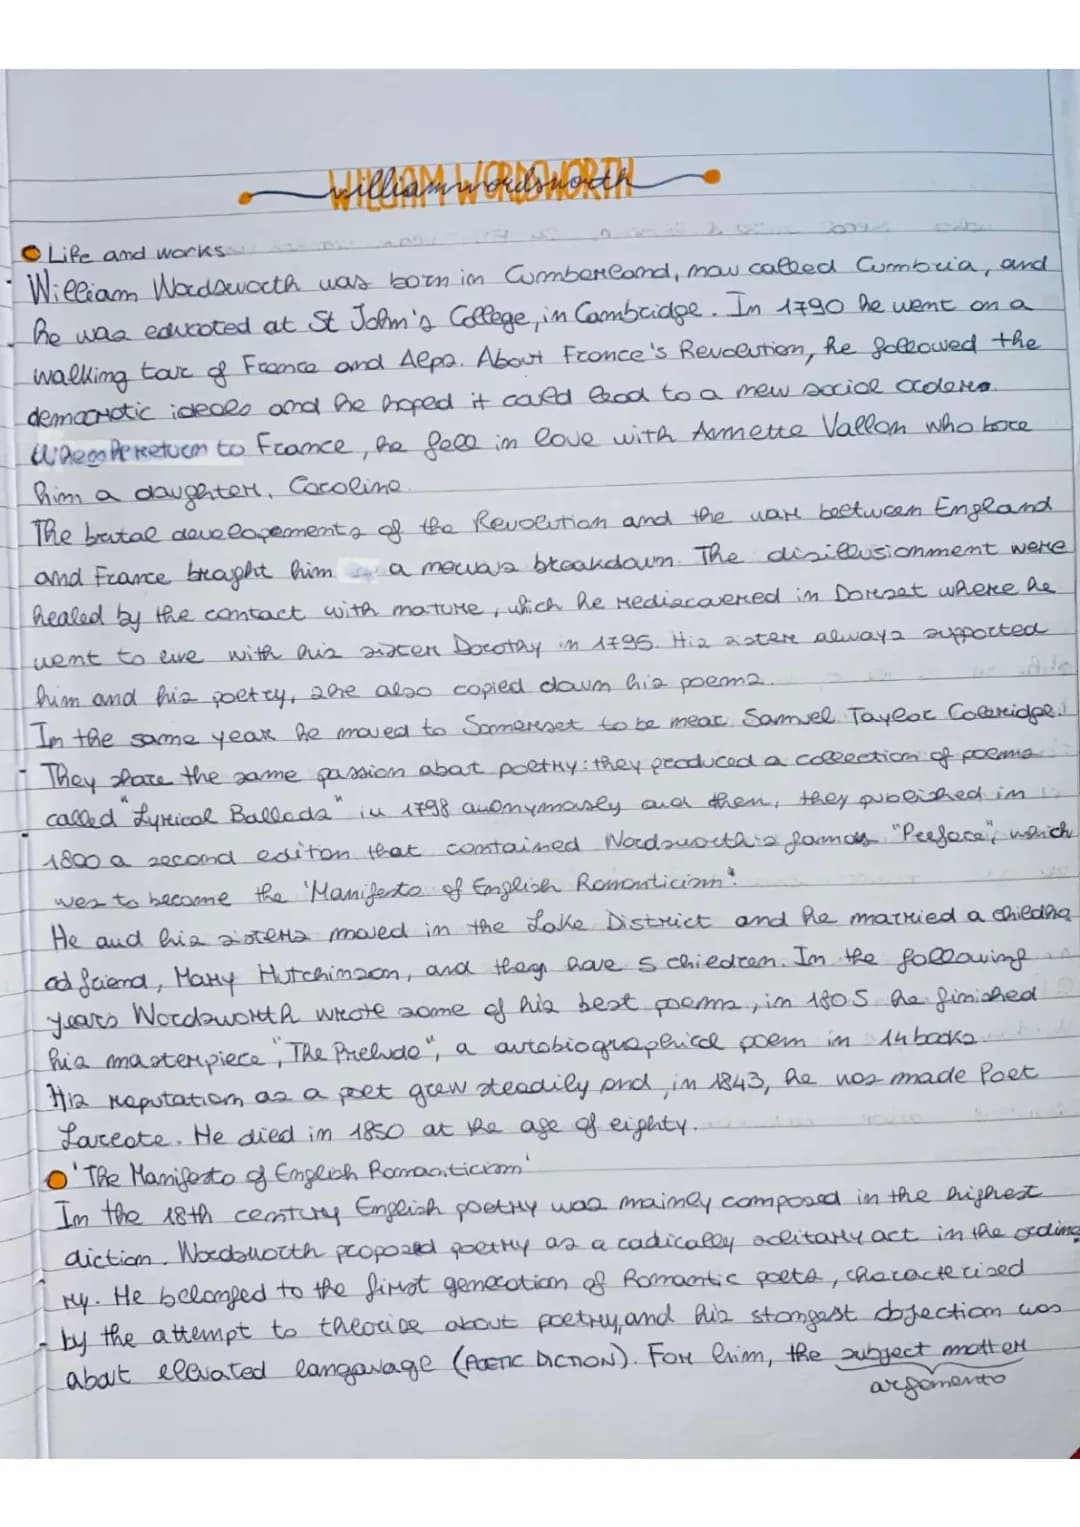 WILLIAM WORDSWORTH
william wordsworth
Life and works
William Wordsworth was born in Cumberland, now called Cumbria, and
he was educated at St John's College, in Cambridge. In 1790 he went on a
walking tour of France and Alps. About France's Revolution, he followed the
democratic ideals and he hoped it could lead to a new social orders.
When he return to France, he fell in love with Annette Vallon who bore
him a daughter, Caroline.
The brutal developements of the Revolution and the war beetween England
and France braught him a nervous breakdown. The disillusionment were
healed by the contact with nature, which he rediscovered in Dorset where he
went to live with his sister Dorothy in 1795. His sister always supported
him and his poetry, she also copied down his poems.
In the same year he moved to Sommerset to be near Samuel Taylor Coleridge.
They share the same passion about poetry: they produced a collection of poems
called "Lyrical Ballads" in 1798 anonymously and then, they published in
1800 a second editon that contained Wordsworth's famous "Preface", which
was to become the 'Manifesto of English Romanticism'.
He and his sisters moved in the Lake District and he married a childho
od friend, Mary Hutchinson, and they have 5 children. In the following
years Wordsworth wrote some of his best poems, in 1805 he finished
his masterpiece, "The Prelude", a autobiographical poem in 14 books.
His reputation as a poet grew steadily and, in 1843, he was made Poet
Laureate. He died in 1850 at the age of eighty.
'The Manifesto of English Romanticism'
In the 18th century English poetry was mainly composed in the highest
diction. Wordsworth proposed poetry as a radically solitary act in the ordina
ry. He belonged to the first generation of Romantic poets, characterised
by the attempt to theorise about poetry, and his stongest objection was
about elevated langauage (POETIC DICTION). For him, the subject matter
argomento